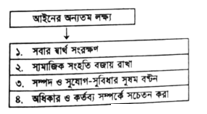 আইনের অন্যতম লক্ষ্য
১. সবার স্বার্থ সংরক্ষণ
২. সামাজিক সংহতি বজায় রাখা
৩. সম্পদ ও সুযোগ-সুবিধার সুষম বণ্টন
৪. অধিকার ও কর্তব্য সম্পর্কে সচেতন করা